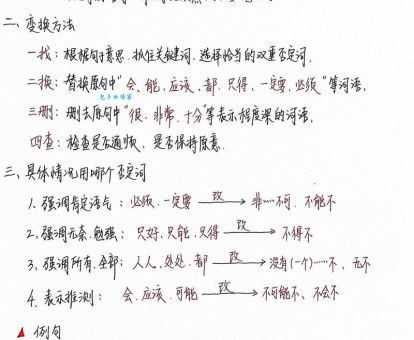 二、变换方法
一找：根据句子意思，抓住关键词，选择恰当的双重否定词。
二换：替换原句中“会、能、应该、都、只得、一定要、必须”等词语。
包子的博客
三删：删去原句中“很、非常、十分”等表示程度深的词语。
四查：检查是否通顺，是否保持原意。
三、具体情况用哪个否定词
1、强调肯定语气：必须、一定要 改 非……不可、不能不
2、强调无奈、勉强：只好、只能、只得 改 不得不
3、强调所有、全部：人人、处处、都 改 没有(一个)……不、无不
4、表示推测：会、应该、可能 改 不可能不、不会不
▲ 例句